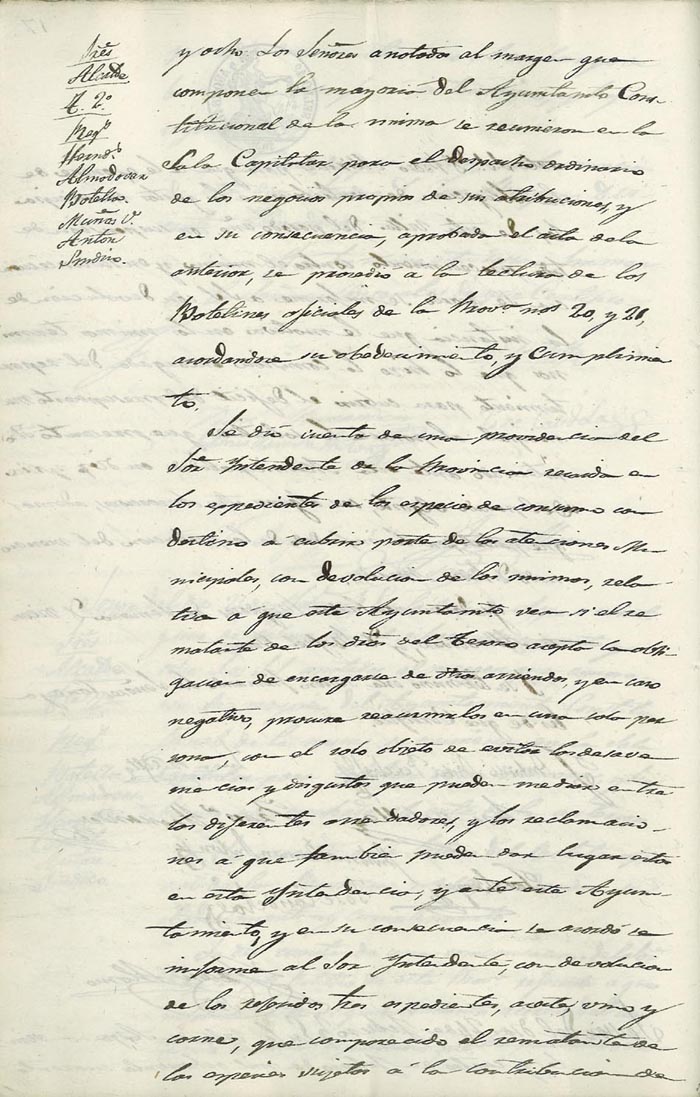 Sres
Alcalde
T. 2.º
Reg.s
Hernd.s
Almodovar
Botella.
Muñas V.
Anton
Sindico.
y ocho. Los Señores anotados al margen que
componen la mayoria del Ayuntam.to Cons-
titucional de la misma se reunieron en la
Sala Capitular para el despacho ordinario
de los negocios propios de sus atribuciones, y
en su consecuencia, aprobada el acta de la
anterior, se procedió á la lectura de los
Botetines oficiales de la Prov.a nos 20, y 21,
acordandose su obedecimiento, y cumplimien
to.
Se dio cuenta de una providencia del
Sor. Yntendente de la Provincia recaida en
los espedientes de las especies de consumo con
destino á cubrir parte de las atenciones Mu-
nicipales, con devolucion de los mismos, rela-
tiva a que este Ayuntam.to vea si el re
matante de los dros del Tesoro acepta la obli-
gacion de encargarse de otros arriendos, y en caso
negativo, procure reasumirlos en una sola per
sona, con el solo objeto de evitar los desave
niencias y disgustos que pueden mediar entre
los diferentes arrendadores, y las reclamacio-
nes á que tambie pueden dar lugar estos
en esta Yntendencia, y ante este Ayun-
tamiento, y en su consecuencia se acordó se
informe al Sor Yntendente, con devolucion
de los referidos tres espedientes, aceite, vino y
carne, que comparecido el rematante de
las especies sujetas á la contribucion de